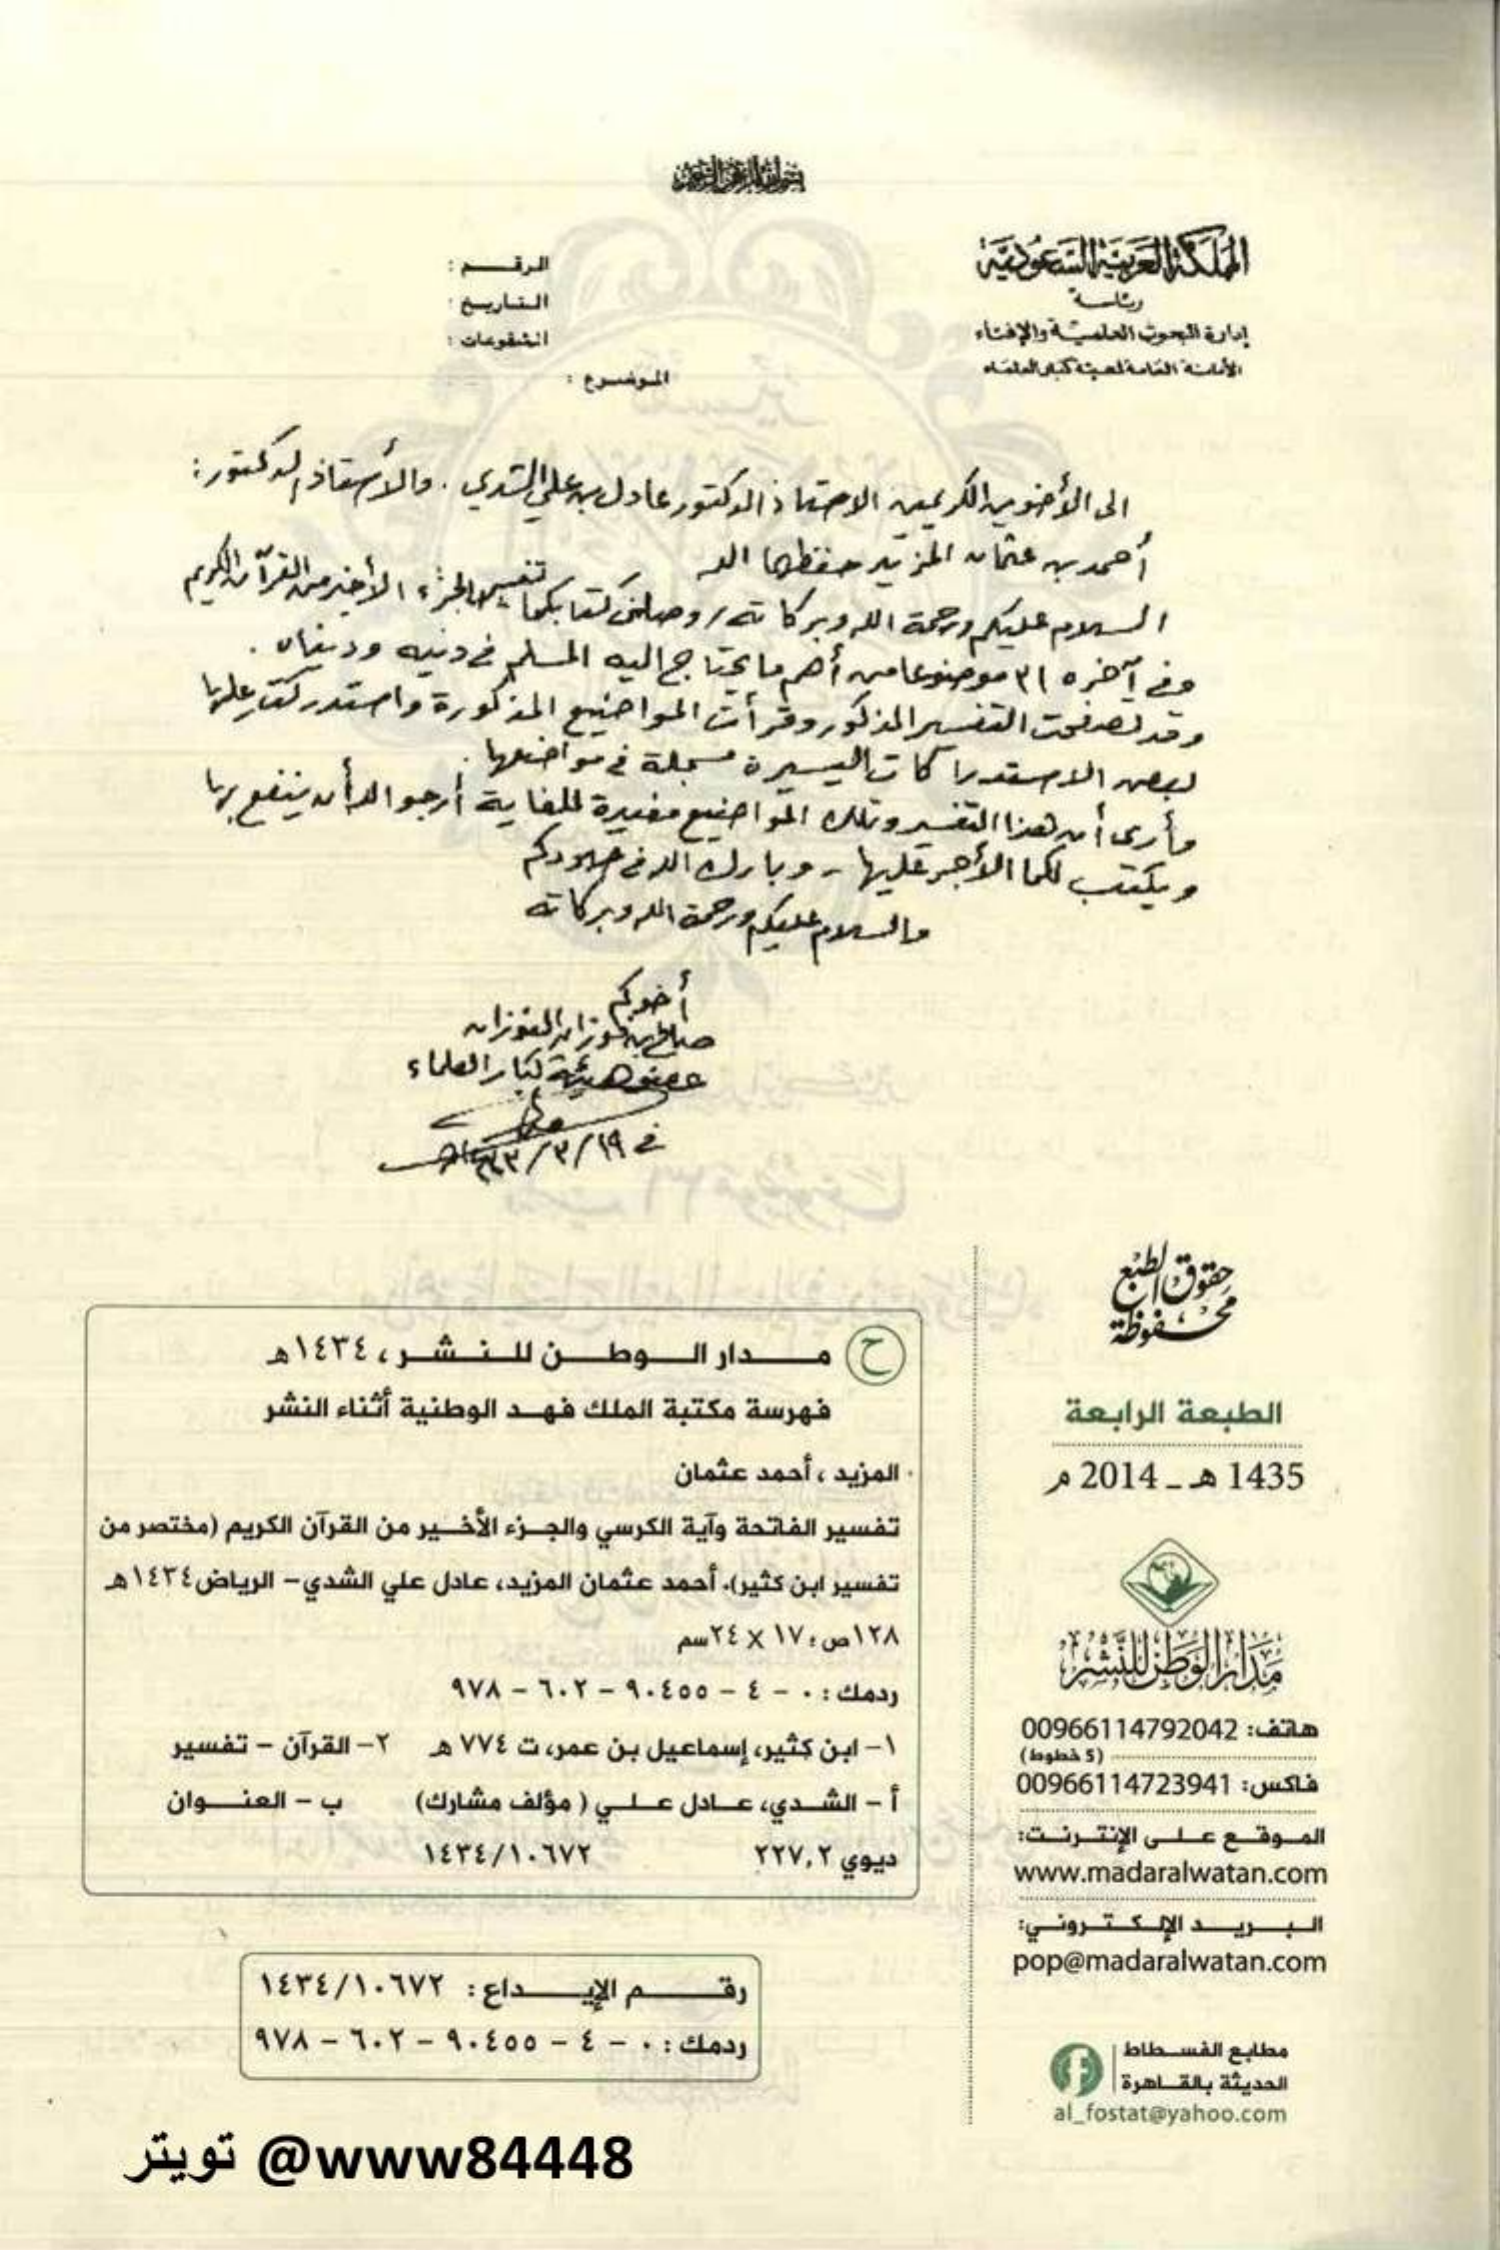 بسم الله الرحمن الرحيم
المملكة العربية السعودية
رئاسة
إدارة البحوث العلمية والإفتاء
الأمانة العامة لهيئة كبار العلماء
الرقم :
التاريخ :
المشفوعات :
الموضوع :
الى الأخوين الكريمين الاستاذ الدكتور عادل بن علي الشدي . والأستاذ الدكتور :
أحمد بن عثمان المزيد حفظهما الله
السلام عليكم ورحمة الله وبركاته / وصلني كتابكما تفسير الجزء الأخير من القرآن الكريم
وفي آخره ٣١ موضوعا من أهم ما يحتاج اليه المسلم في دينه ودنياه .
وقد تصفحت التفسير المذكور وقرأت المواضيع المذكورة واستدركت عليها
بعض الاستدراكات اليسيرة مسجلة في مواضعها .
وأرى أن هذا التفسير وتلك المواضيع مفيدة للغاية أرجو الله أن ينفع بها
ويكتب لكما الأجر عليها - وبارك الله في جهودكم
والسلام عليكم ورحمة الله وبركاته
أخوكم
صالح بن فوزان الفوزان
عضو هيئة كبار العلماء
في ١٩/٣/
حقوق الطبع
محفوظة
الطبعة الرابعة
1435 هـ ـ 2014 م
مدار الوطن للنشر
هاتف: 00966114792042
(5 خطوط)
فاكس: 00966114723941
الموقع على الإنترنت:
www.madaralwatan.com
البريد الإلكتروني:
pop@madaralwatan.com
مطابع الفسطاط
الحديثة بالقاهرة
al_fostat@yahoo.com
ح مدار الوطن للنشر ، ١٤٣٤هـ
فهرسة مكتبة الملك فهد الوطنية أثناء النشر
المزيد ، أحمد عثمان
تفسير الفاتحة وآية الكرسي والجزء الأخير من القرآن الكريم (مختصر من
تفسير ابن كثير). أحمد عثمان المزيد، عادل علي الشدي – الرياض ١٤٣٤هـ
١٢٨ص ؛ ١٧ × ٢٤سم
ردمك : ٠ – ٤ – ٩٠٤٥٥ – ٦٠٢ – ٩٧٨
١– ابن كثير، إسماعيل بن عمر، ت ٧٧٤ هـ ٢– القرآن – تفسير
أ – الشدي، عادل علي ( مؤلف مشارك) ب – العنوان
ديوي ٢٢٧,٢ ١٤٣٤/١٠٦٧٢
رقم الإيداع : ١٤٣٤/١٠٦٧٢
ردمك : ٠ – ٤ – ٩٠٤٥٥ – ٦٠٢ – ٩٧٨
تويتر @www84448